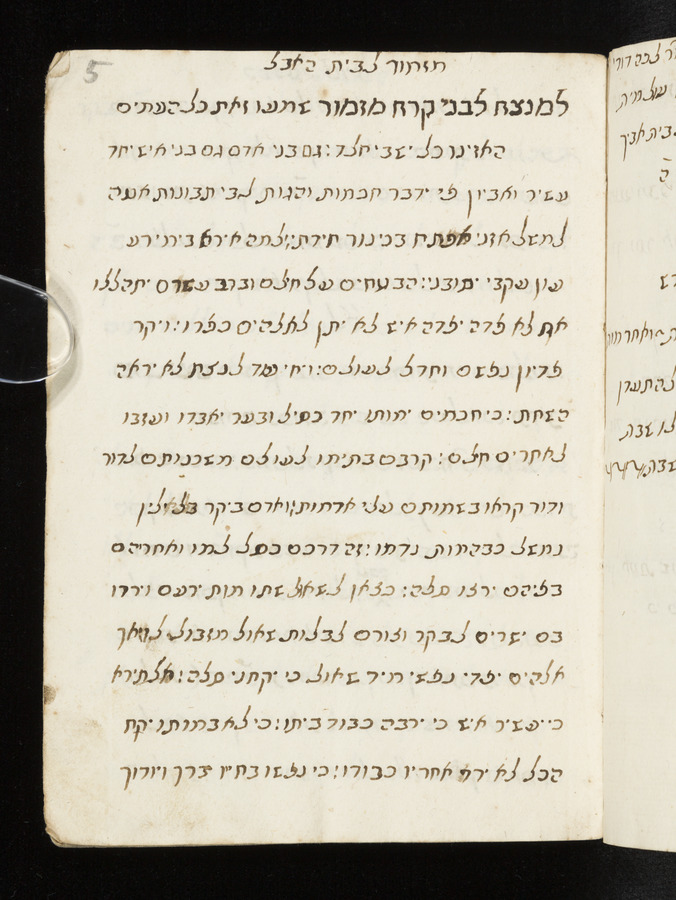 5
מזמור לבית האבל
למנצח לבני קרח מזמור שמעו זאת כל העמים
האזינו כל ישבי חלד: גם בני אדם גם בני איש יחד
עשיר ואביון פי ידבר חכמות והגות לבי תבונות אטה
למשל אזני אפתח בכינור חידתי: למה אירא בימי רע
עון עקבי יסובני: הבטחים על חילם וברב עשרם יתהללו
אח לא פדה יפדה איש לא יתן לאלהים כפרו: ויקר
פדיון נפשם וחדל לעולם: ויחי עוד לנצח לא יראה
השחת: כי חכמים ימותו יחד כסיל ובער יאבדו ועזבו
לאחרים חילם: קרבם בתימו לעולם משכנותם לדור
ודור קראו בשמותם עלי אדמות: ואדם ביקר בל ילין
נמשל כבהמות נדמו: זה דרכם כסל למו ואחריהם
בפיהם ירצו סלה: כצאן לשאול שתו מות ירעם וירדו
בם ישרים לבקר וצורם לבלות שאול מזבול לו: אך
אלהים יפדי נפשי מיד שאול כי יקחני סלה: אל תירא
כי יעשיר איש כי ירבה כבוד ביתו: כי לא במותו יקח
הכל לא ירד אחריו כבודו: כי נפשו בחייו יברך ויודוך